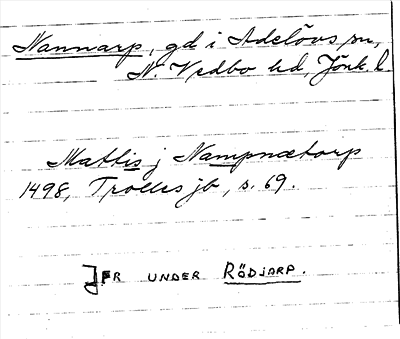 Nannarp, gd i Adelövs sn,
N. Vedbo hd, Jönk. l
Mattis j Nampnætorp
1498, Trolles jb, s. 69.
JFR UNDER RÖDJARP.